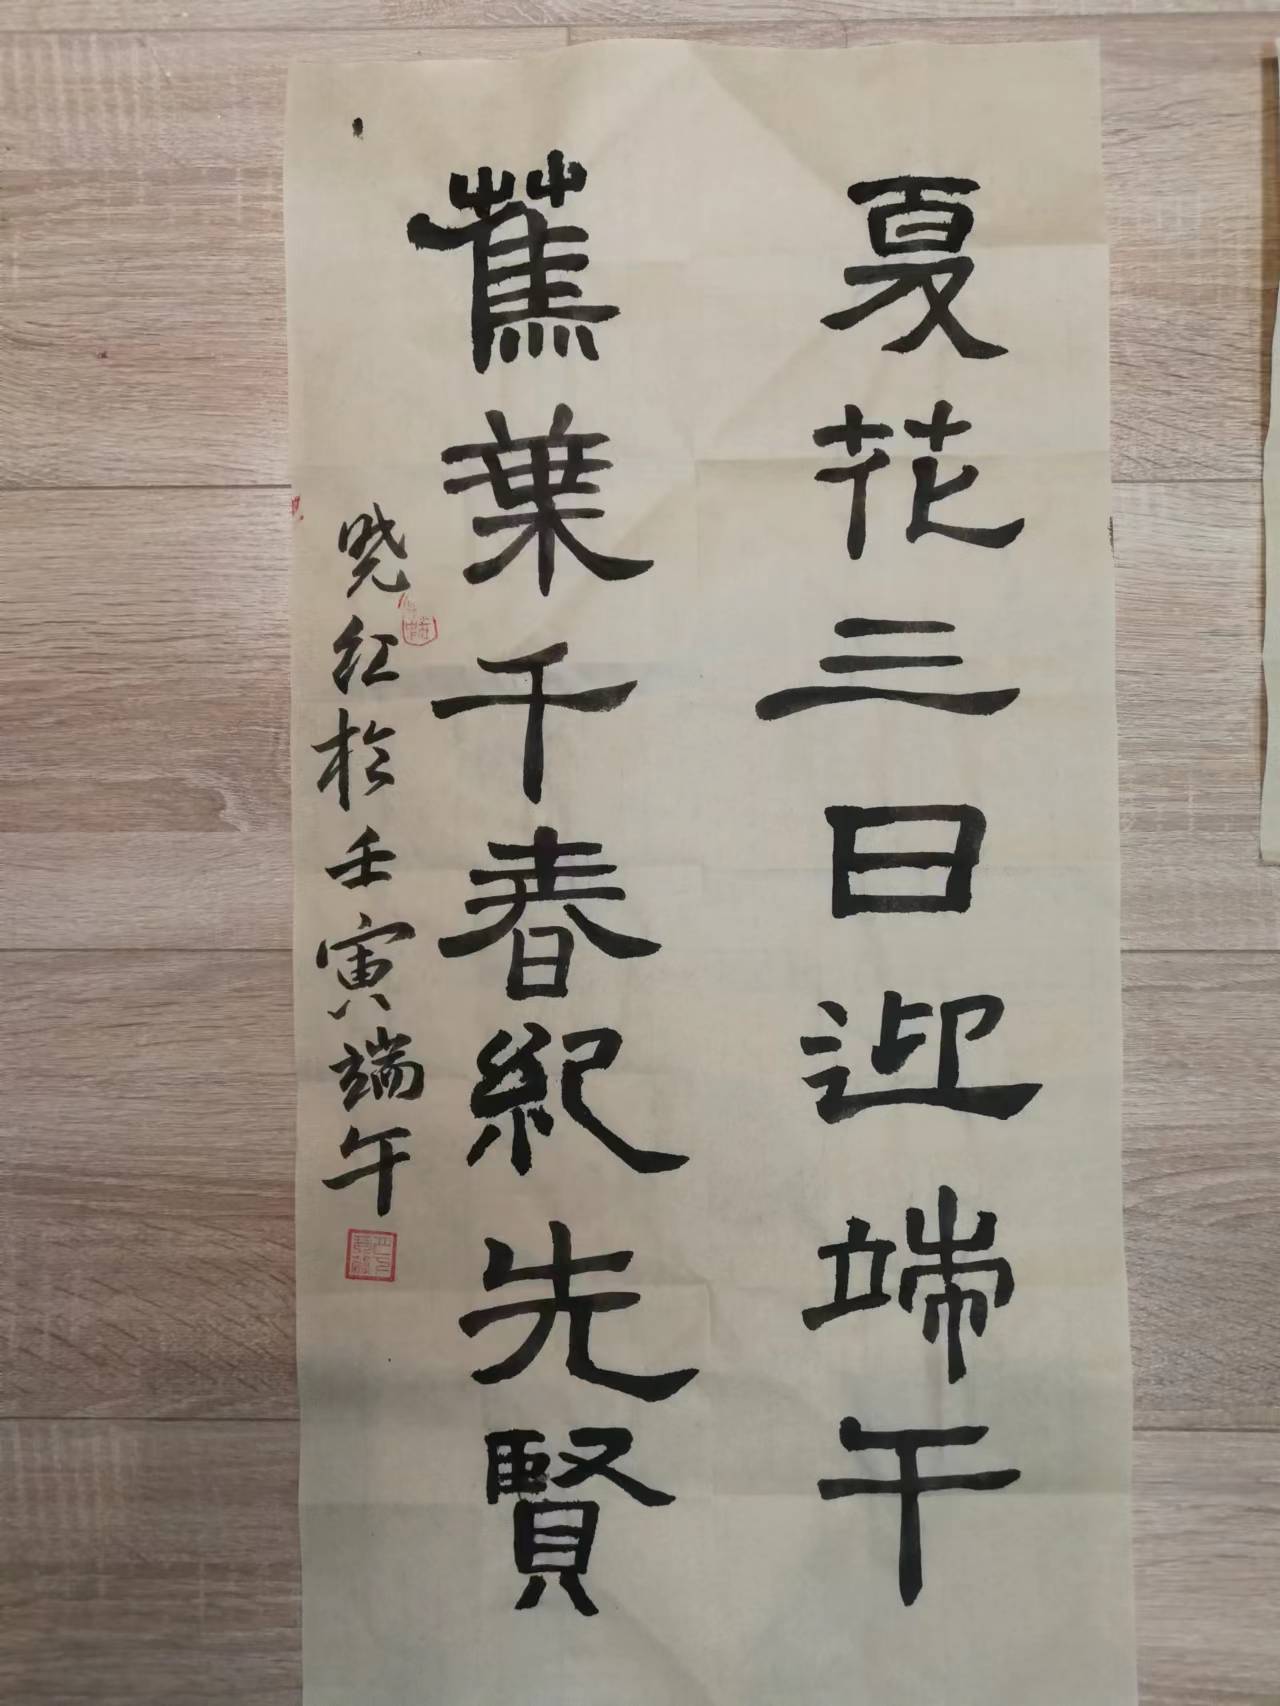 夏花三日迎端午
蕉葉千春紀先賢
晓红於壬寅端午